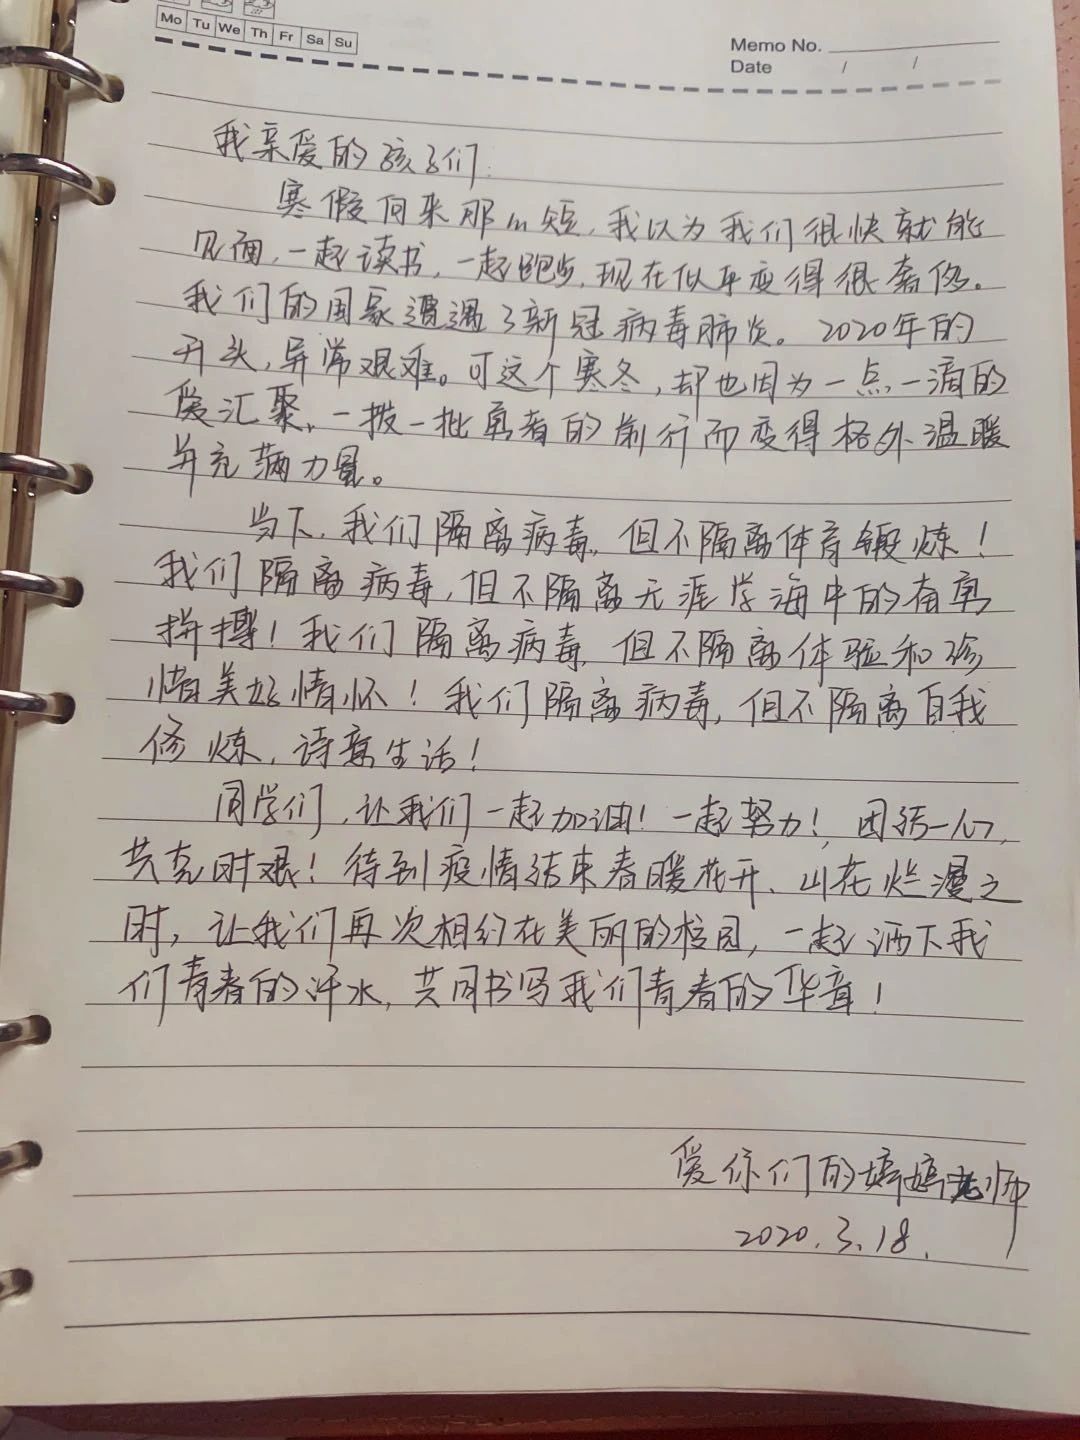 Mo Tu We Th Fr Sa Su
Memo No.
Date / /
我亲爱的孩子们:
寒假向来那么短,我以为我们很快就能
见面,一起读书,一起跑步,现在似乎变得很奢侈。
我们的国家遭遇了新冠病毒肺炎。2020年的
开头,异常艰难。可这个寒冬,却也因为一点一滴的
爱汇聚,一拨一批勇者的前行而变得格外温暖
并充满力量。
当下,我们隔离病毒,但不隔离体育锻炼!
我们隔离病毒,但不隔离无涯学海中的奋勇
拼搏!我们隔离病毒,但不隔离体验和珍
惜美好情怀!我们隔离病毒,但不隔离自我
修炼,诗意生活!
同学们,让我们一起加油!一起努力!团结一心,
共克时艰!待到疫情结束春暖花开、山花烂漫之
时,让我们再次相约在美丽的校园,一起洒下我
们青春的汗水,共同书写我们青春的华章!
爱你们的婷婷老师
2020.3.18.